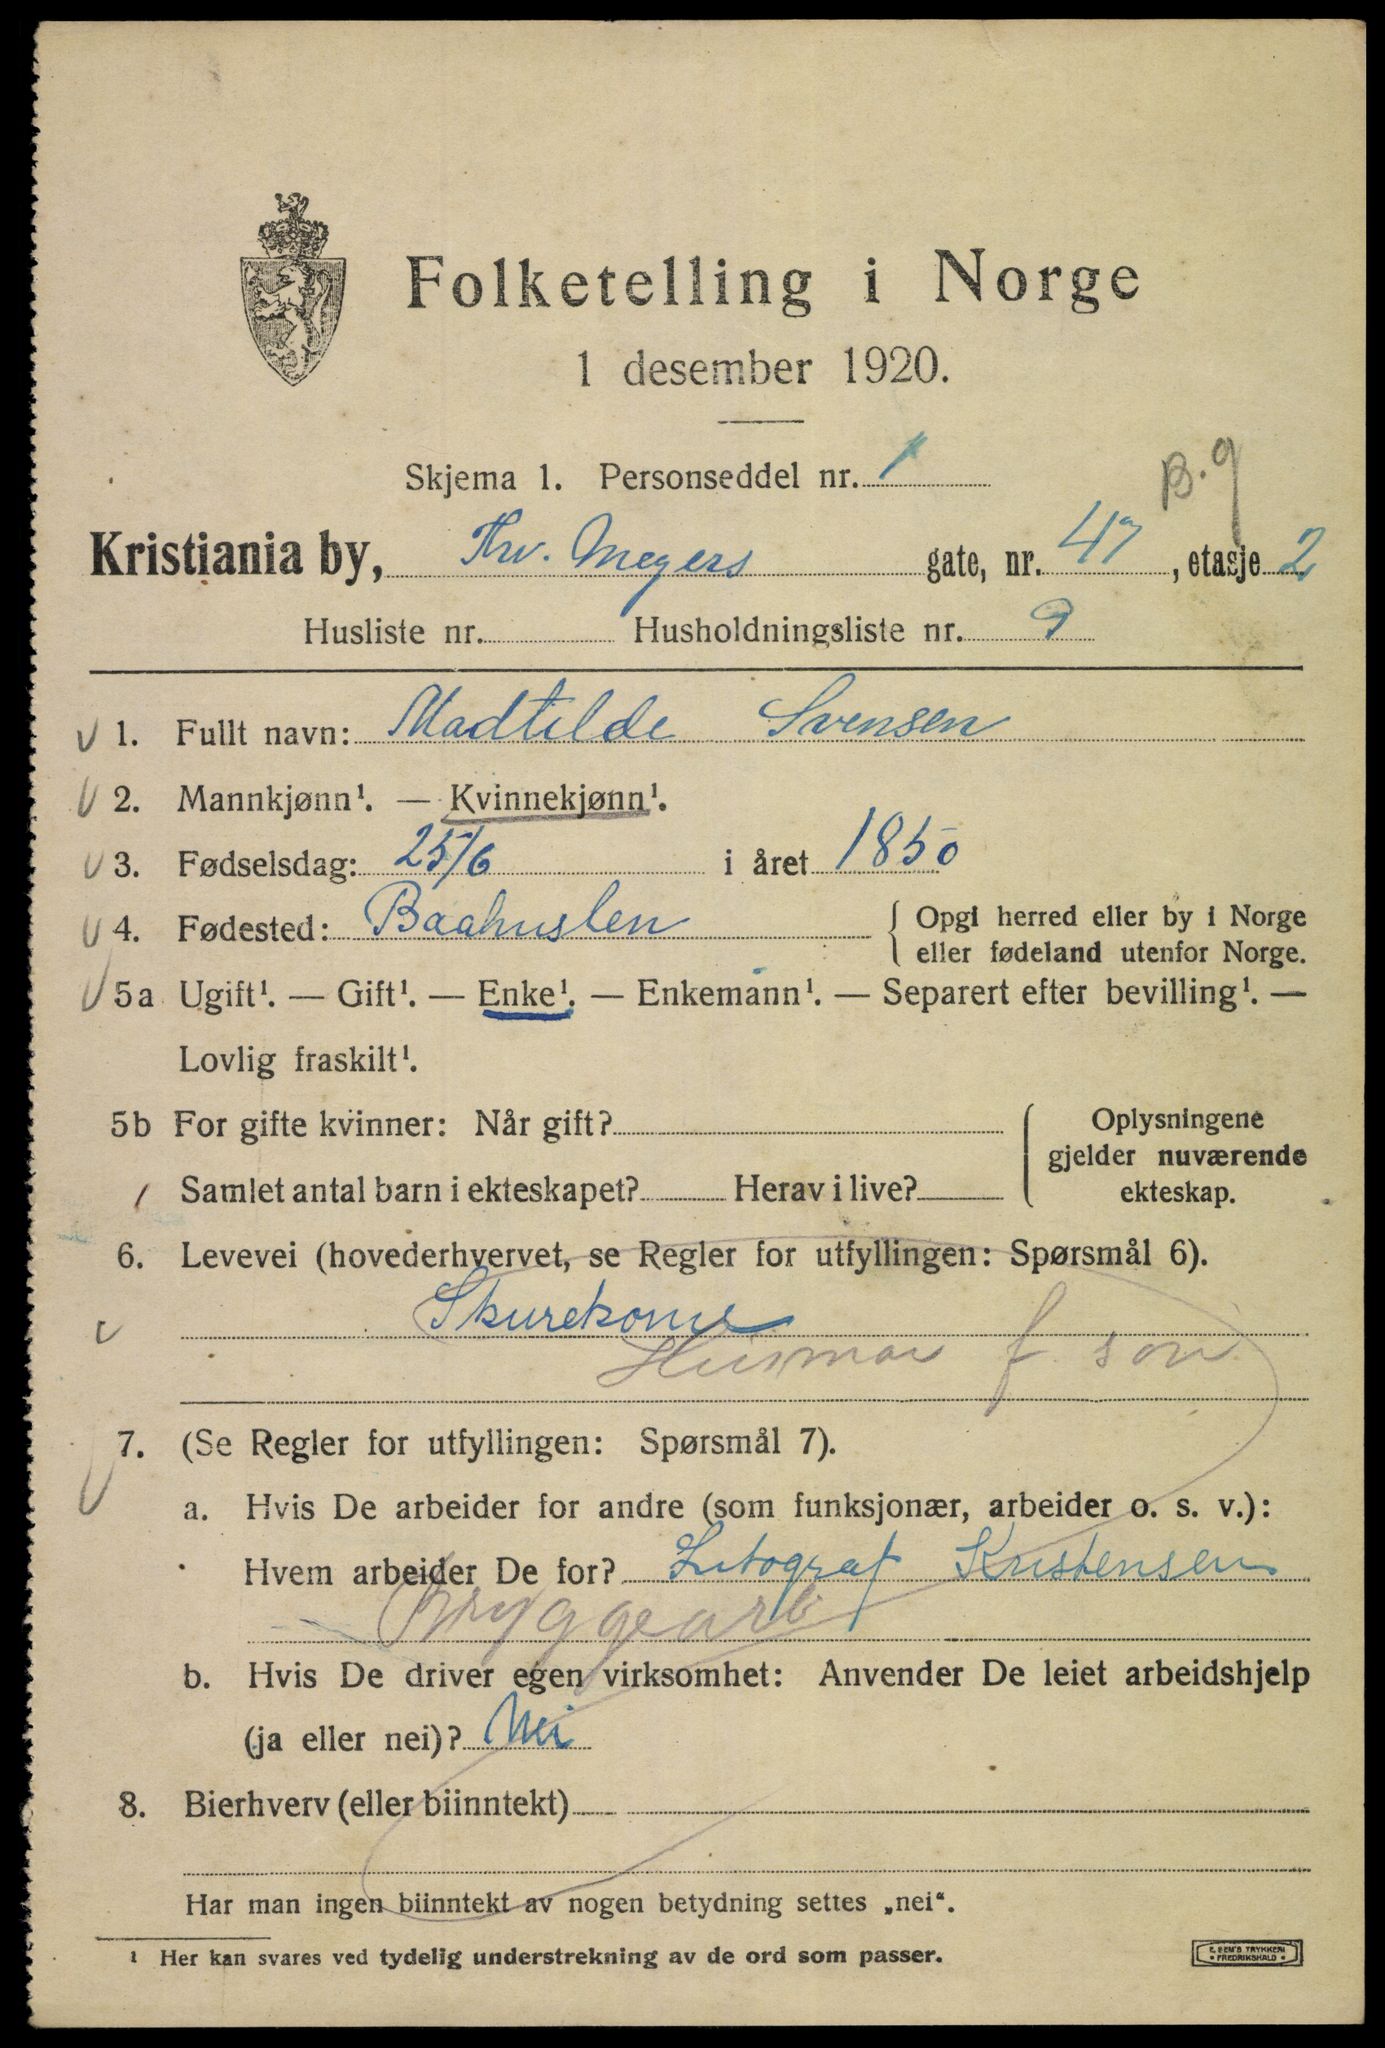 Folketelling i Norge
1 desember 1920.
Skjema 1. Personseddel nr. 1
B. 9
Kristiania by, Thv. Meyers gate, nr. 47, etasje 2
Husliste nr. Husholdningsliste nr. 9
1. Fullt navn: Madtilde Svensen
2. Mannkjønn¹. — Kvinnekjønn¹.
3. Fødselsdag: 25/6 i året 1850
4. Fødested: Baahuslen { Opgi herred eller by i Norge
eller fødeland utenfor Norge.
5a Ugift¹. — Gift¹. — Enke¹. — Enkemann¹. — Separert efter bevilling¹. —
Lovlig fraskilt¹.
5b For gifte kvinner: Når gift? Oplysningene
gjelder nuværende
Samlet antal barn i ekteskapet? Herav i live? ekteskap.
6. Levevei (hovederhvervet, se Regler for utfyllingen: Spørsmål 6).
Skurekone
Husmor f. søn
7. (Se Regler for utfyllingen: Spørsmål 7).
a. Hvis De arbeider for andre (som funksjonær, arbeider o. s. v.):
Hvem arbeider De for? Litograf Kristensen
Bryggearb
b. Hvis De driver egen virksomhet: Anvender De leiet arbeidshjelp
(ja eller nei)? Nei
8. Bierhverv (eller biinntekt)
Har man ingen biinntekt av nogen betydning settes „nei“.
¹ Her kan svares ved tydelig understrekning av de ord som passer.
E. SEM'S TRYKKERI
FREDRIKSHALD